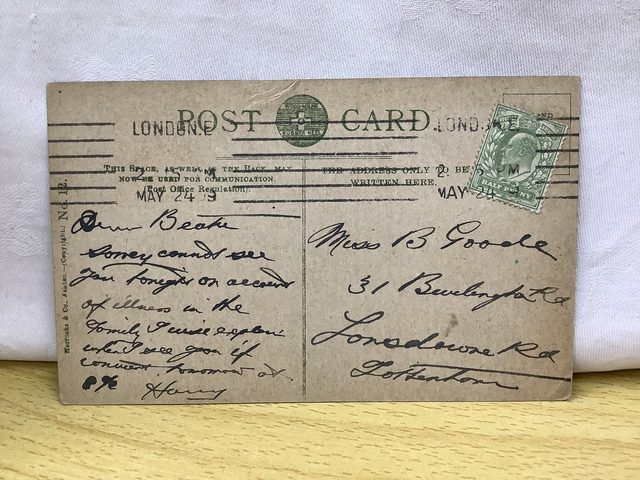 POST CARD
LONDON.E
LOND
THIS SPACE, AS WELL THE BACK, MAY
NOW BE USED FOR COMMUNICATION.
(Post Office Regulation).
THE ADDRESS ONLY TO BE
WRITTEN HERE.
MAY 24 9
MAY 24 9
No. 12.
Horrocks & Co. Ashton.—(Copyright.)
Dear
Sorrey cannot see
you tonight on account
of illness in the
family I will explain
when I see you if
tomorrow at
Harry
Miss B Goode
31 Burlington Rd
Lonsdowne Rd
Tottenham